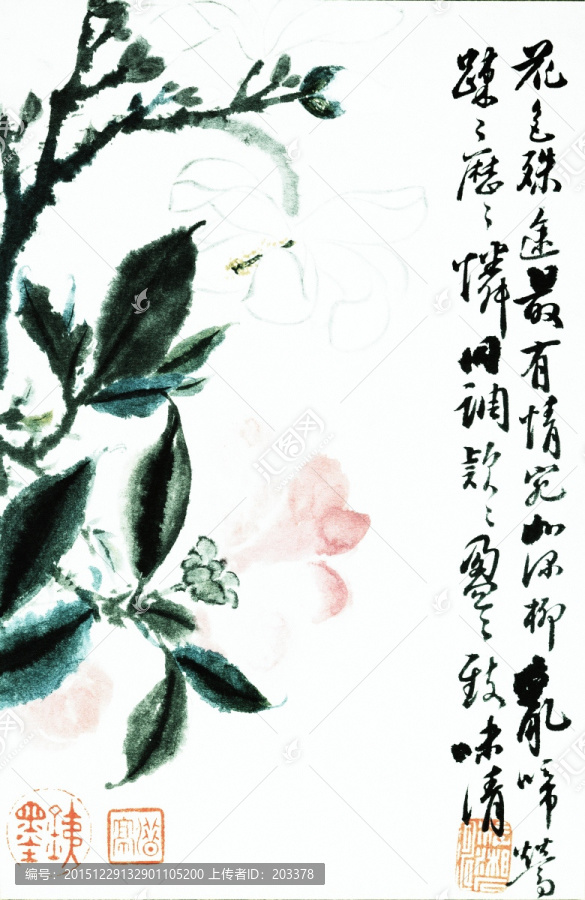 花色殊途最有情宛如深柳亂啼鶯
疎々歷々憐同調款々盈々致味清
編号：20151229132901105200 上传者ID：203378
汇图网